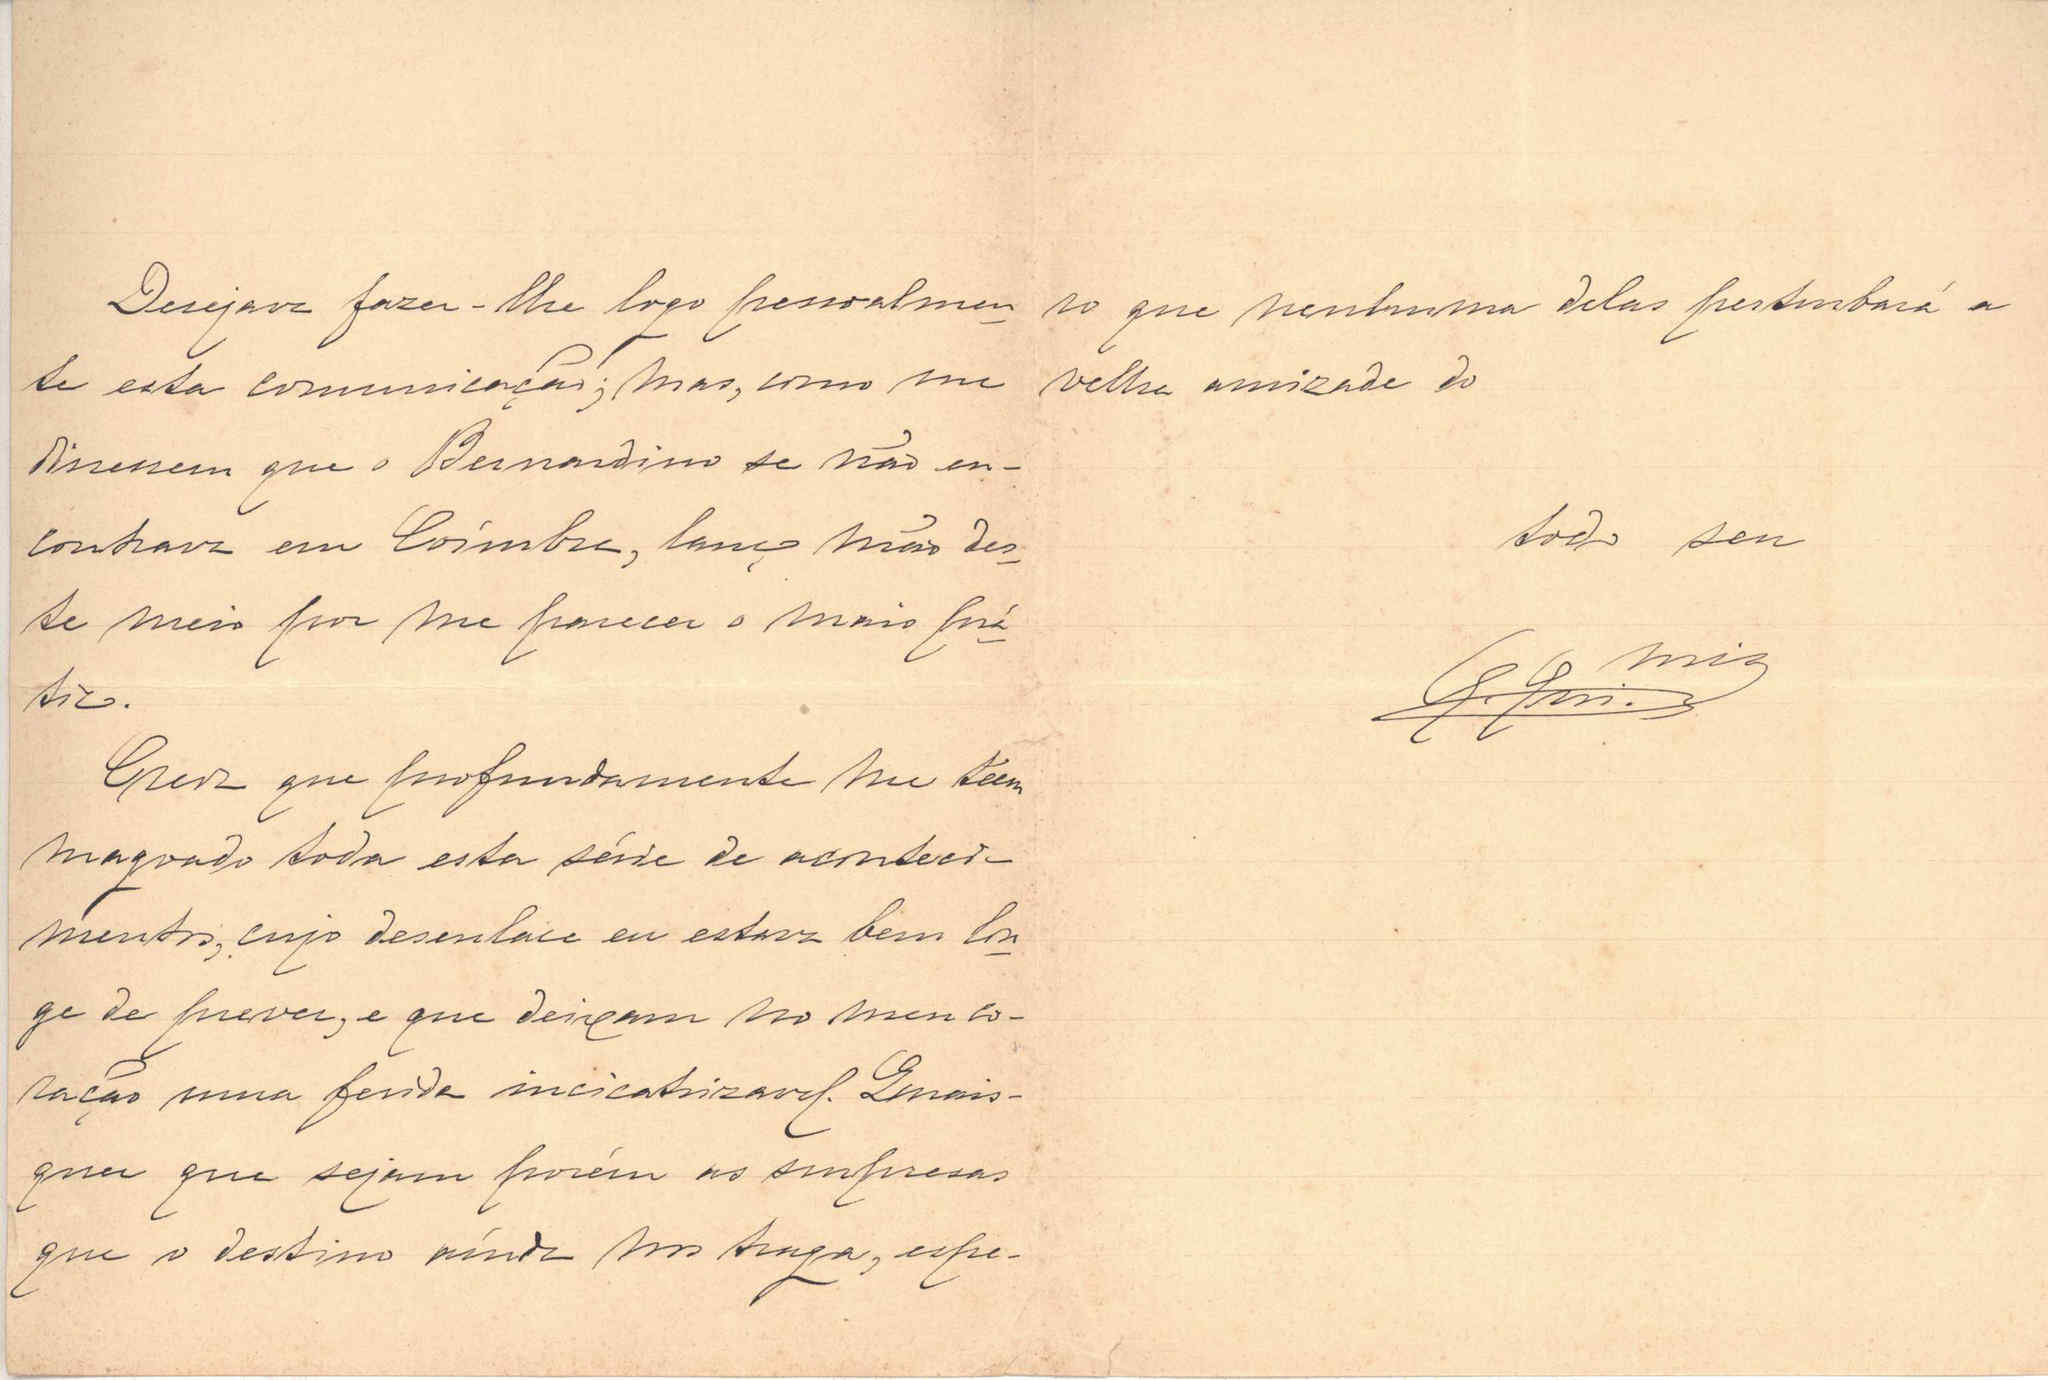 Desejava fazer-lhe logo pessoalmen-
te esta comunicação; mas, como me
dissessem que o Bernardino se não en-
contrava em Coímbra, lanço mão des-
te meio por me parecer o mais prá-
tico.
Creia que profundamente me teem
magoado toda esta série de aconteci-
mentos, cujo desenlace eu estava bem lon-
ge de prever, e que deixam no meu co-
ração uma ferida incicatrizavel. Quais-
quer que sejam porém as surpresas
que o destino aínda nos traga, espe-
ro que nenhuma delas perturbará a
velha amizade do
todo seu